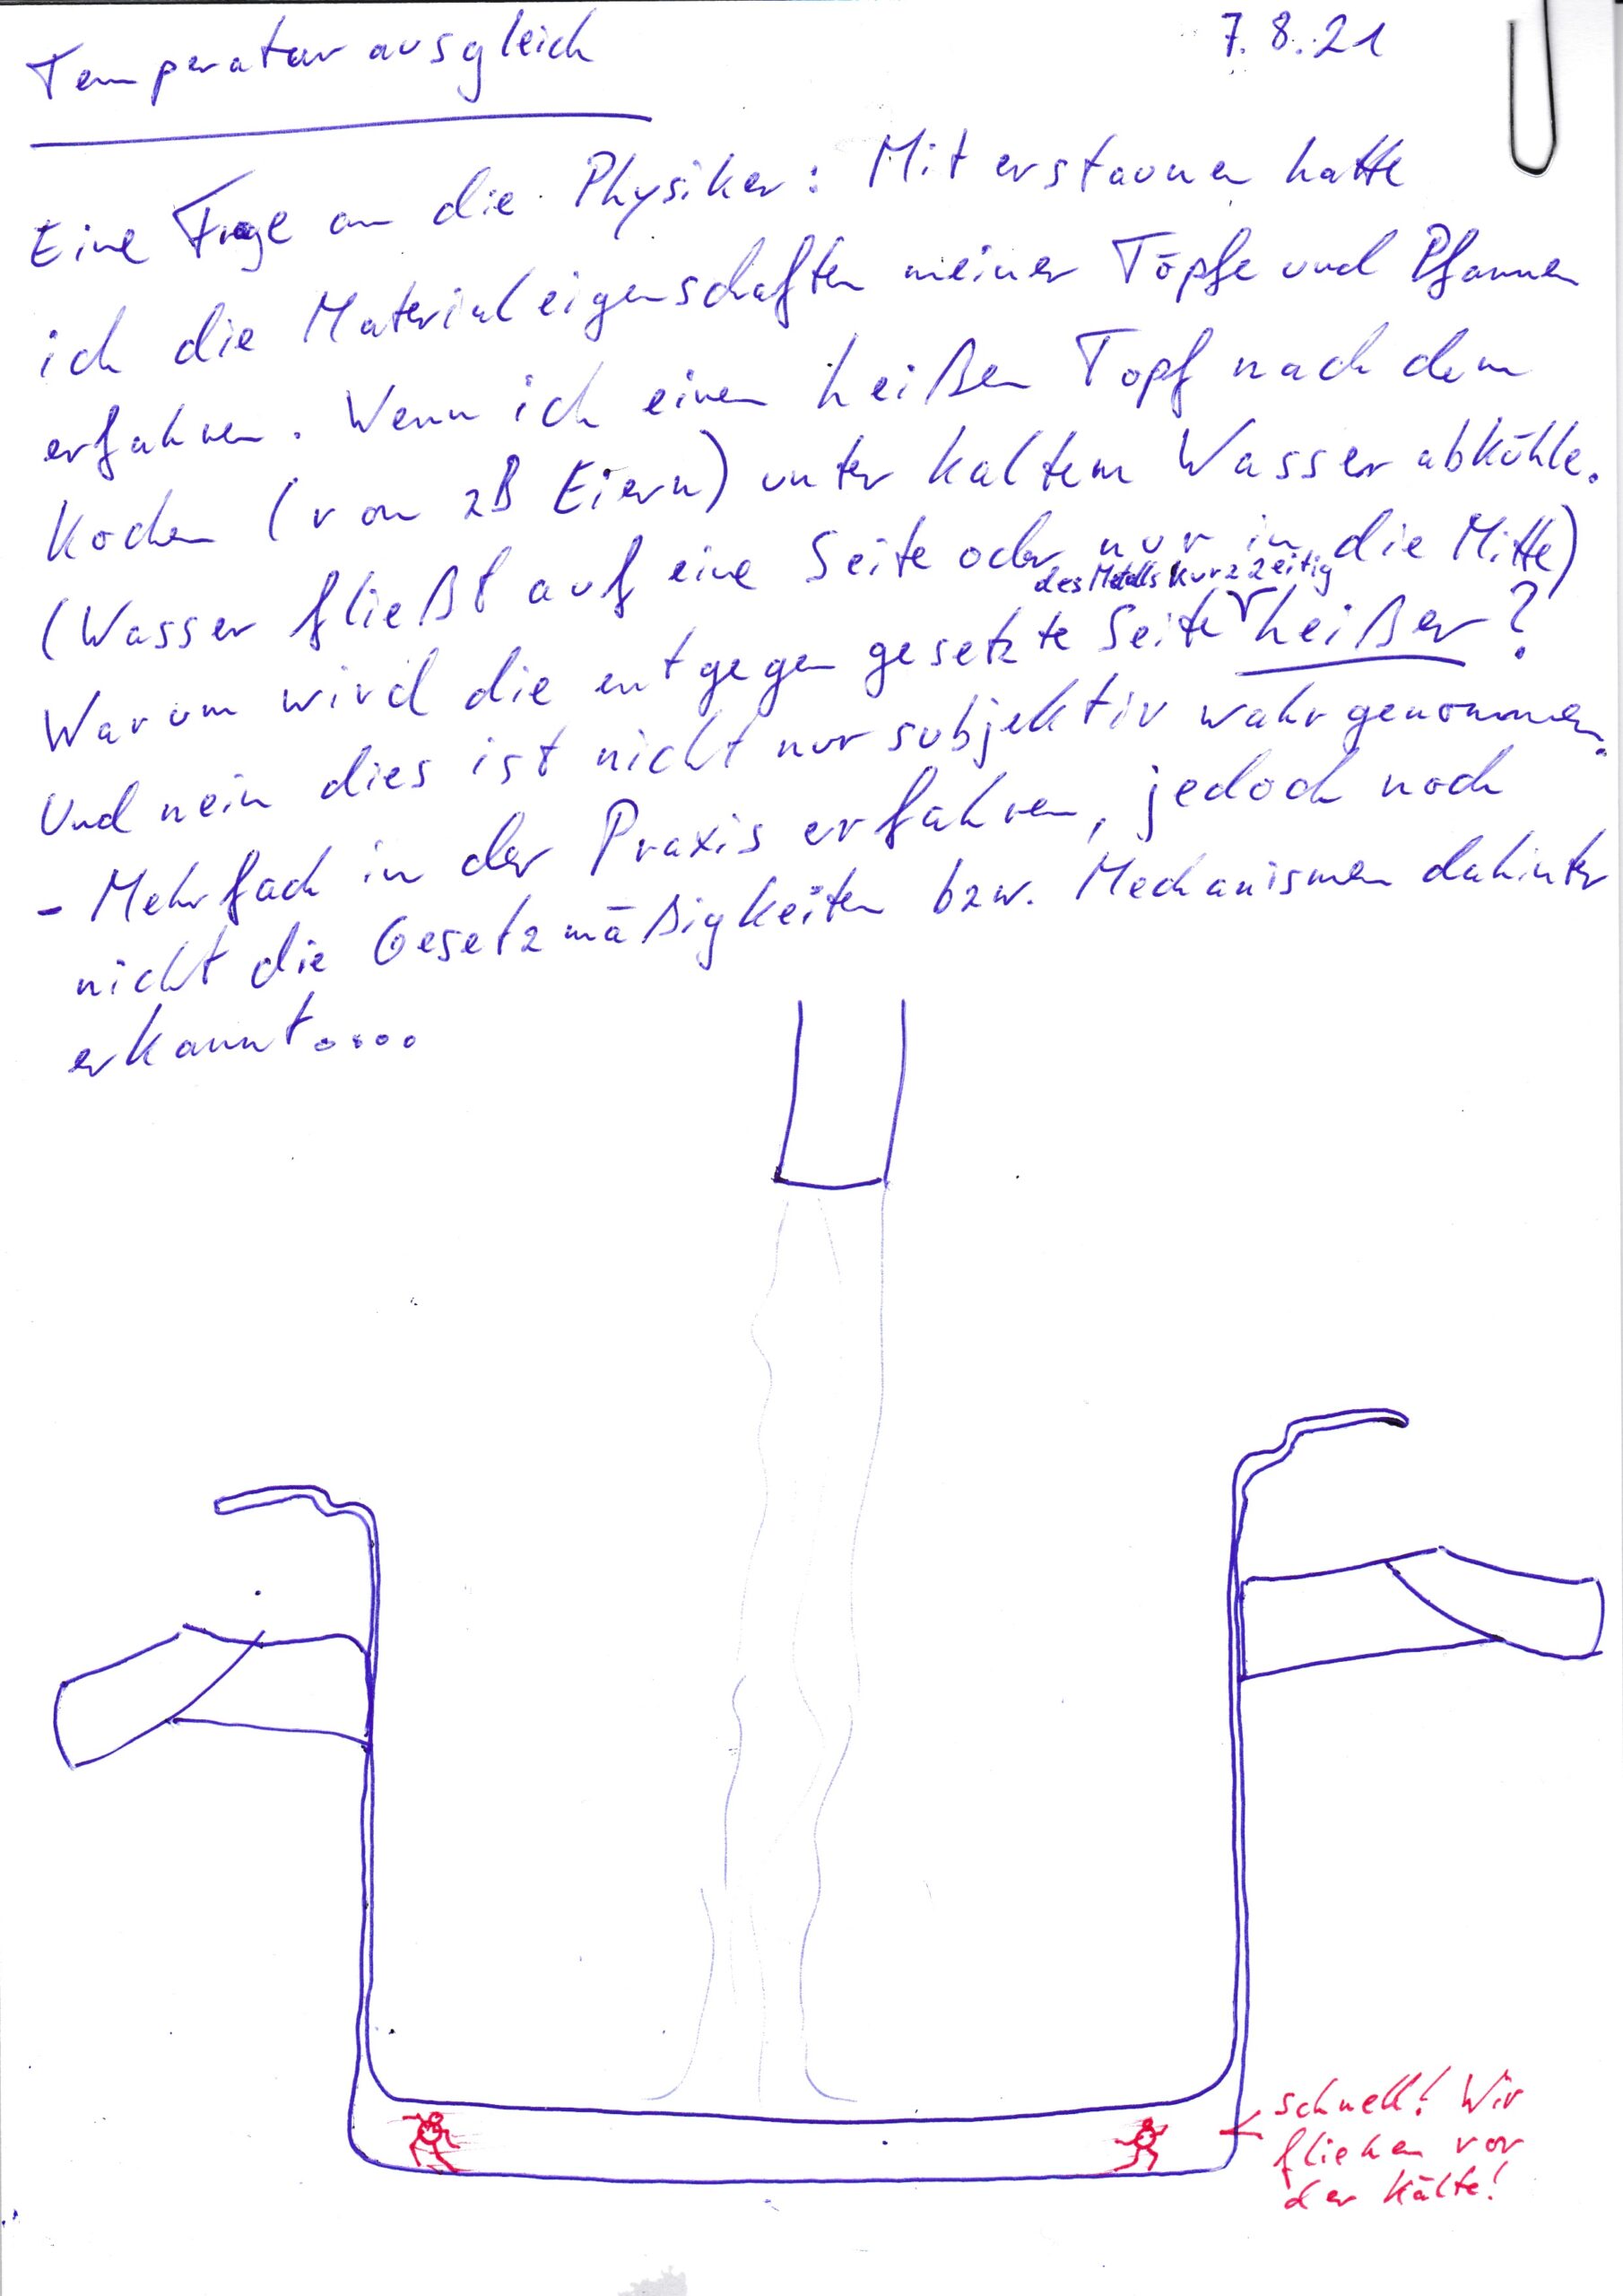 Temperaturausgleich
7.8.21
Eine Frage an die Physiker: Mit erstaunen hatte
ich die Materialeigenschaften meiner Töpfe und Pfannen
erfahren. Wenn ich einen heißen Topf nach dem
Kochen (von zB Eiern) unter kaltem Wasser abkühle.
(Wasser fließt auf eine Seite oder nur in die Mitte)
des Metalls kurzzeitig
Warum wird die entgegen gesetzte Seite heißer?
Und nein dies ist nicht nur subjektiv wahrgenommen.
- Mehrfach in der Praxis erfahren, jedoch noch
nicht die Gesetzmäßigkeiten bzw. Mechanismen dahinter
erkannt....
schnell! Wir
fliehen vor
der Kälte!